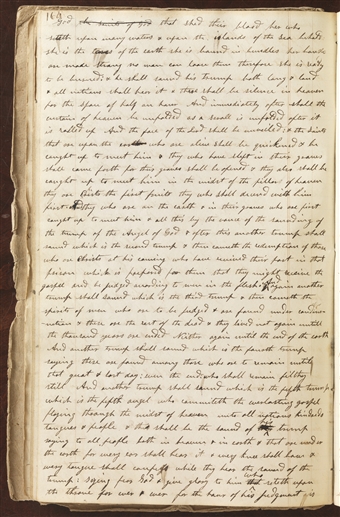 God the saints of God that shed their blood her who
sitteth upon many waters & upon the islands of the sea behold
she is the tares of the earth she is bound in bundles her bands
are made strong no man can loose them therefore she is ready
to be burned & he shall sound his trump both long & loud
& all nations shall hear it & there shall be silence in heaven
for the space of half an hour And immediately after shall the
curtain of heaven be unfolded as a scroll is unfolded after it
is rolled up And the face of the Lord shall be unveiled & the saints
that are upon the earth who are alive shall be quickened & be
caught up to meet him & they who have slept in their graves
shall come forth for their graves shall be opened & they also shall be
caught up to meet him in the midst of the pillar of heaven
they are Christs the first fruits they who shall descend with him
first & they who are on the earth & in their graves who are first
caught up to meet him & all this by the voice of the sounding of
the trump of the Angel of God & after this another trump shall
sound which is the second trump & then cometh the redemption of those
who are Christs at his coming who have received their part in that
prison which is prepared for them that they might receive the
gospel and be judged according to men in the flesh & again another
trump shall sound which is the third trump & then cometh the
spirits of men who are to be judged & are found under condem
nation & these are the rest of the dead & they lived not again until
the thousand years are ended Neither again until the end of the earth
And another trump shall sound which is the fourth trump
saying these are found among those who are to remain until
that great & last day; even the end who shall remain filthy
still And another trump shall sound which is the fifth trump
which is the fifth angel who committeth the everlasting gospel
flying through the midst of heaven unto all nations kindreds
tongues & people & this shall be the sound of his trump
saying to all people both in heaven & in earth & that are under
the earth for every ear shall hear it & every knee shall bow &
every tongue shall confess while they hear the sound of the
trump: saying fear God & give glory to him who sitteth upon
the throne for ever & ever for the hour of his judgment is